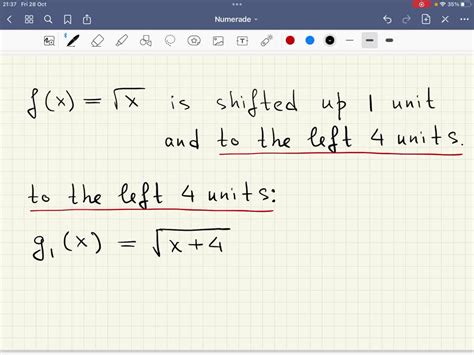 21:37 Fri 28 Oct
35%
Numerade
f(x) = √x is shifted up 1 unit
and to the left 4 units.
to the left 4 units:
g₁(x) = √x+4